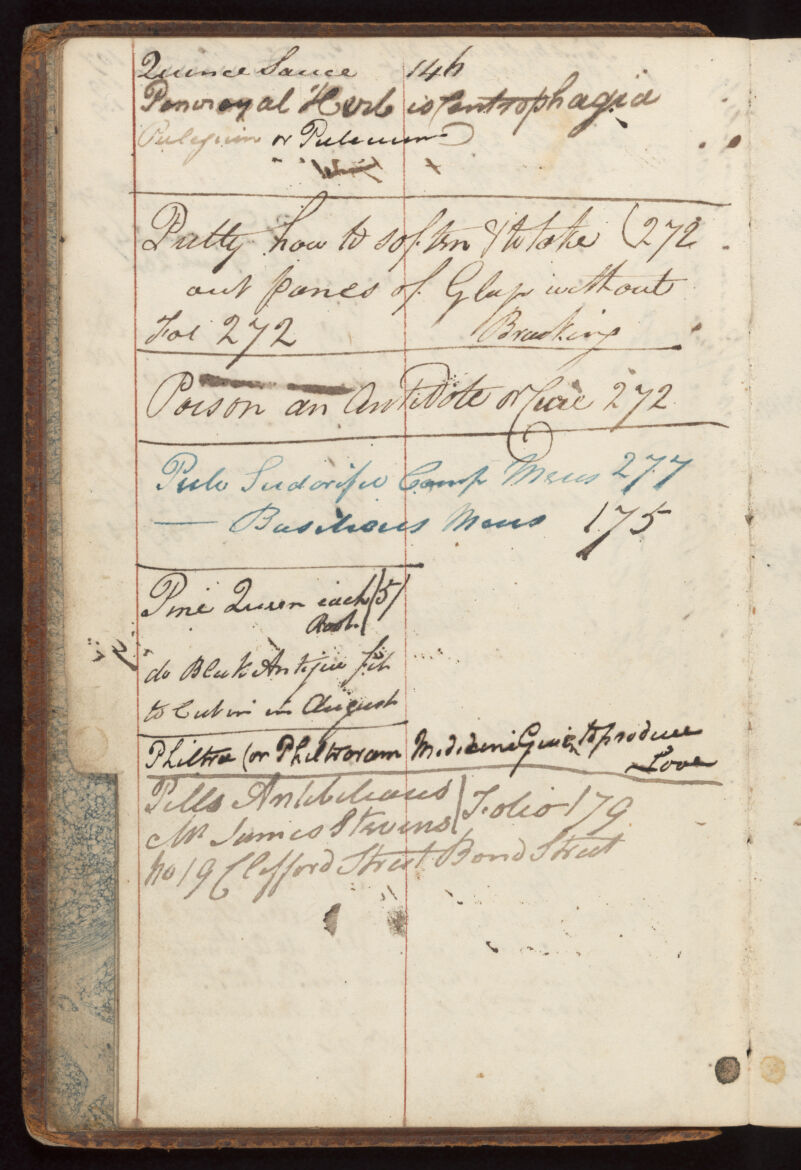 Quince Sauce 146
Penroyal Herb is Centrophagia
Pulegium or
Putty how to soften & to take (272
out panes of Glass without
Fol 272 Breaking
Poison an Antidote or Cure 272
Pulv Sudorific Comp Meus 277
— Basilicus Meus 175
Pine Queen each 5/
Root.
do Black Antigua fit
to Cut in in August
Philtra (or Philtrarum Medicine Given to produce
Love
Pills Antibilious
Mr James Stevens Folio 179
No 19 Clifford Street Bond Street